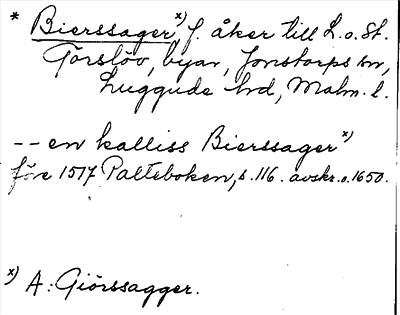 * Bierssager x), f. åker till L. o. St.
Torslöv, byar, Jonstorps sn,
Luggude hrd, Malm. l.
-- en kalliss Bierssager x)
före 1517 Palteboken, s. 116. avskr. o. 1650.
x) A: Giörssagger.